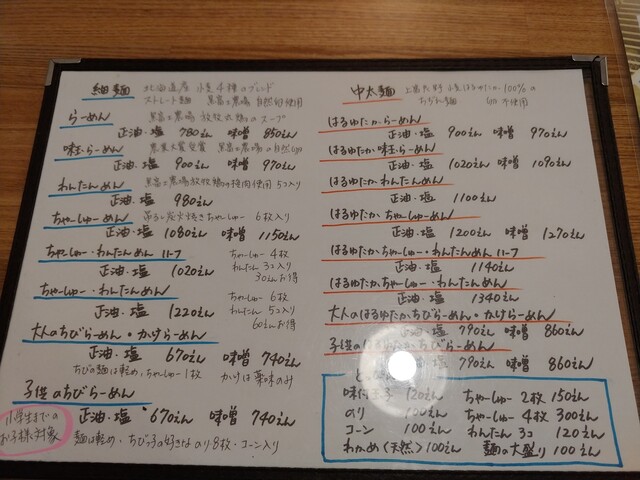 細麺 北海道産 小麦4種のブレンド
ストレート麺 黒富士農場 自然卵使用
らーめん 黒富士農場 放牧丸鶏のスープ
正油・塩 780えん 味噌 850えん
味玉らーめん 農業大賞受賞 黒富士農場の自然卵
正油・塩 900えん 味噌 970えん
わんたんめん 黒富士農場放牧鶏の挽肉使用 5コ入り
正油・塩 980えん
ちゃーしゅーめん 吊るし炭火焼きちゃーしゅー 6枚入り
正油・塩 1080えん 味噌 1150えん
ちゃーしゅー・わんたんめん ハーフ ちゃーしゅー 4枚
わんたん 3コ入り
正油・塩 1020えん 30えんお得
ちゃーしゅー・わんたんめん ちゃーしゅー 6枚
わんたん 5コ入り
正油・塩 1220えん 60えんお得
大人のちびらーめん・かけらーめん
正油・塩 670えん 味噌 740えん
ちびの麺は軽め、ちゃーしゅー1枚 かけは薬味のみ
子供のちびらーめん
小学生までのお子様対象
正油・塩 670えん 味噌 740えん
麺は軽め、ちびっ子の好きな のり8枚・コーン入り
中太麺 小麦はるゆたか 100%の
麺 不使用
はるゆたからーめん
正油・塩 900えん 味噌 970えん
はるゆたか味玉らーめん
正油・塩 1020えん 味噌 1090えん
はるゆたかわんたんめん
正油・塩 1100えん
はるゆたかちゃーしゅーめん
正油・塩 1200えん 味噌 1270えん
はるゆたかちゃーしゅー・わんたんめん ハーフ
正油・塩 1140えん
はるゆたかちゃーしゅー・わんたんめん
正油・塩 1340えん
大人のはるゆたかちびらーめん・かけらーめん
正油・塩 790えん 味噌 860えん
子供のはるゆたかちびらーめん
正油・塩 790えん 味噌 860えん
味付玉子 120えん ちゃーしゅー 2枚 150えん
のり 100えん ちゃーしゅー 4枚 300えん
コーン 100えん わんたん 3コ 120えん
わかめ(天然) 100えん 麺の大盛り 100えん